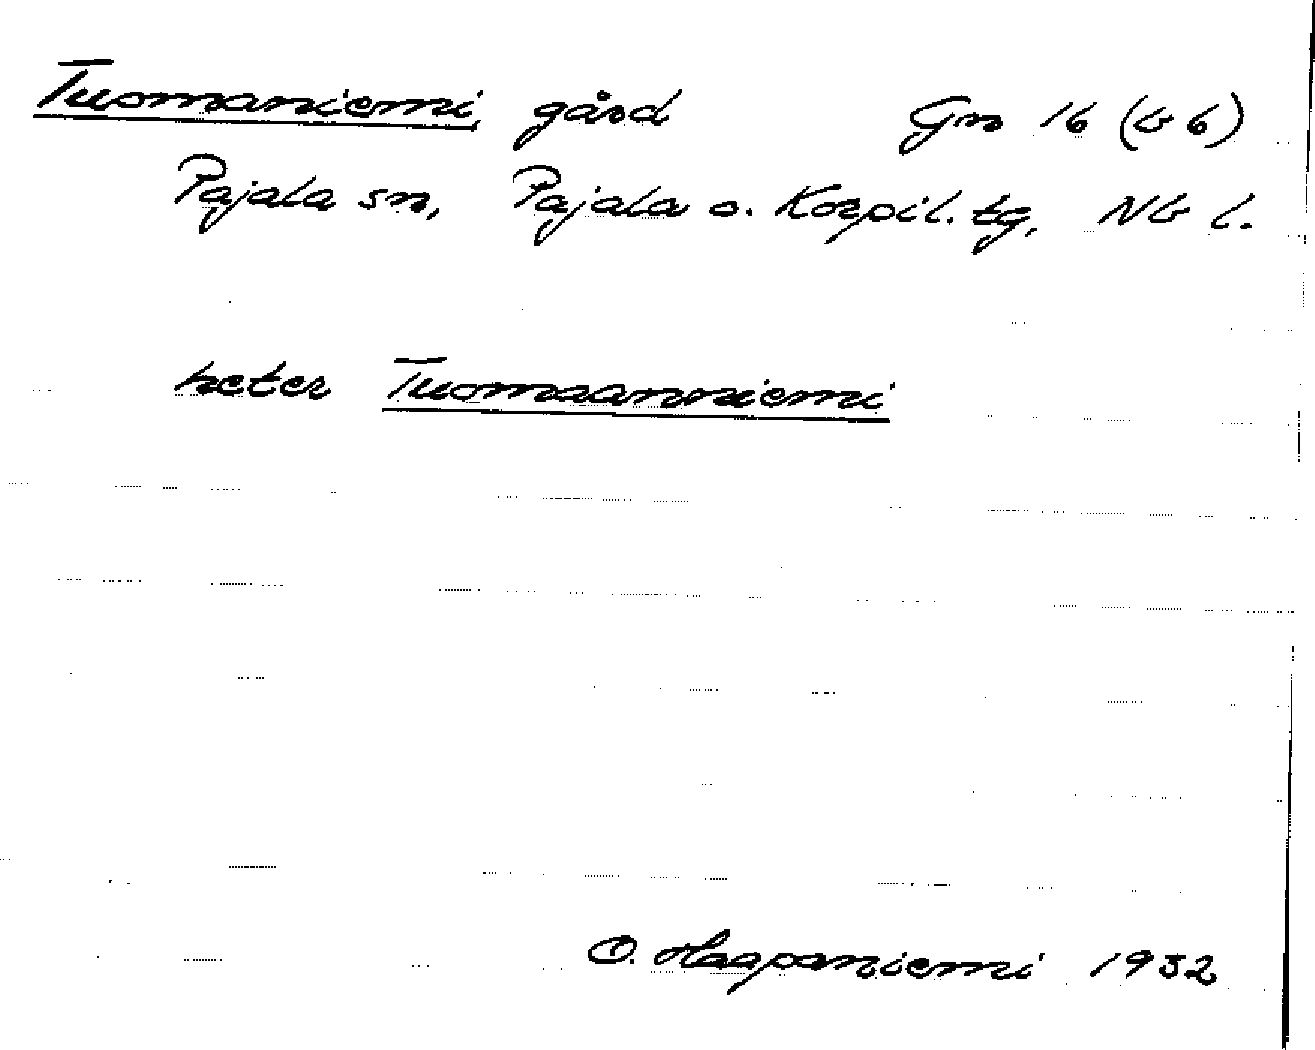 Tuomaniemi, gård Gn 16 (b 6)
Pajala sn, Pajala o. Korpil. tg, Nb l.
heter Tuomaanniemi
O. Haapaniemi 1932